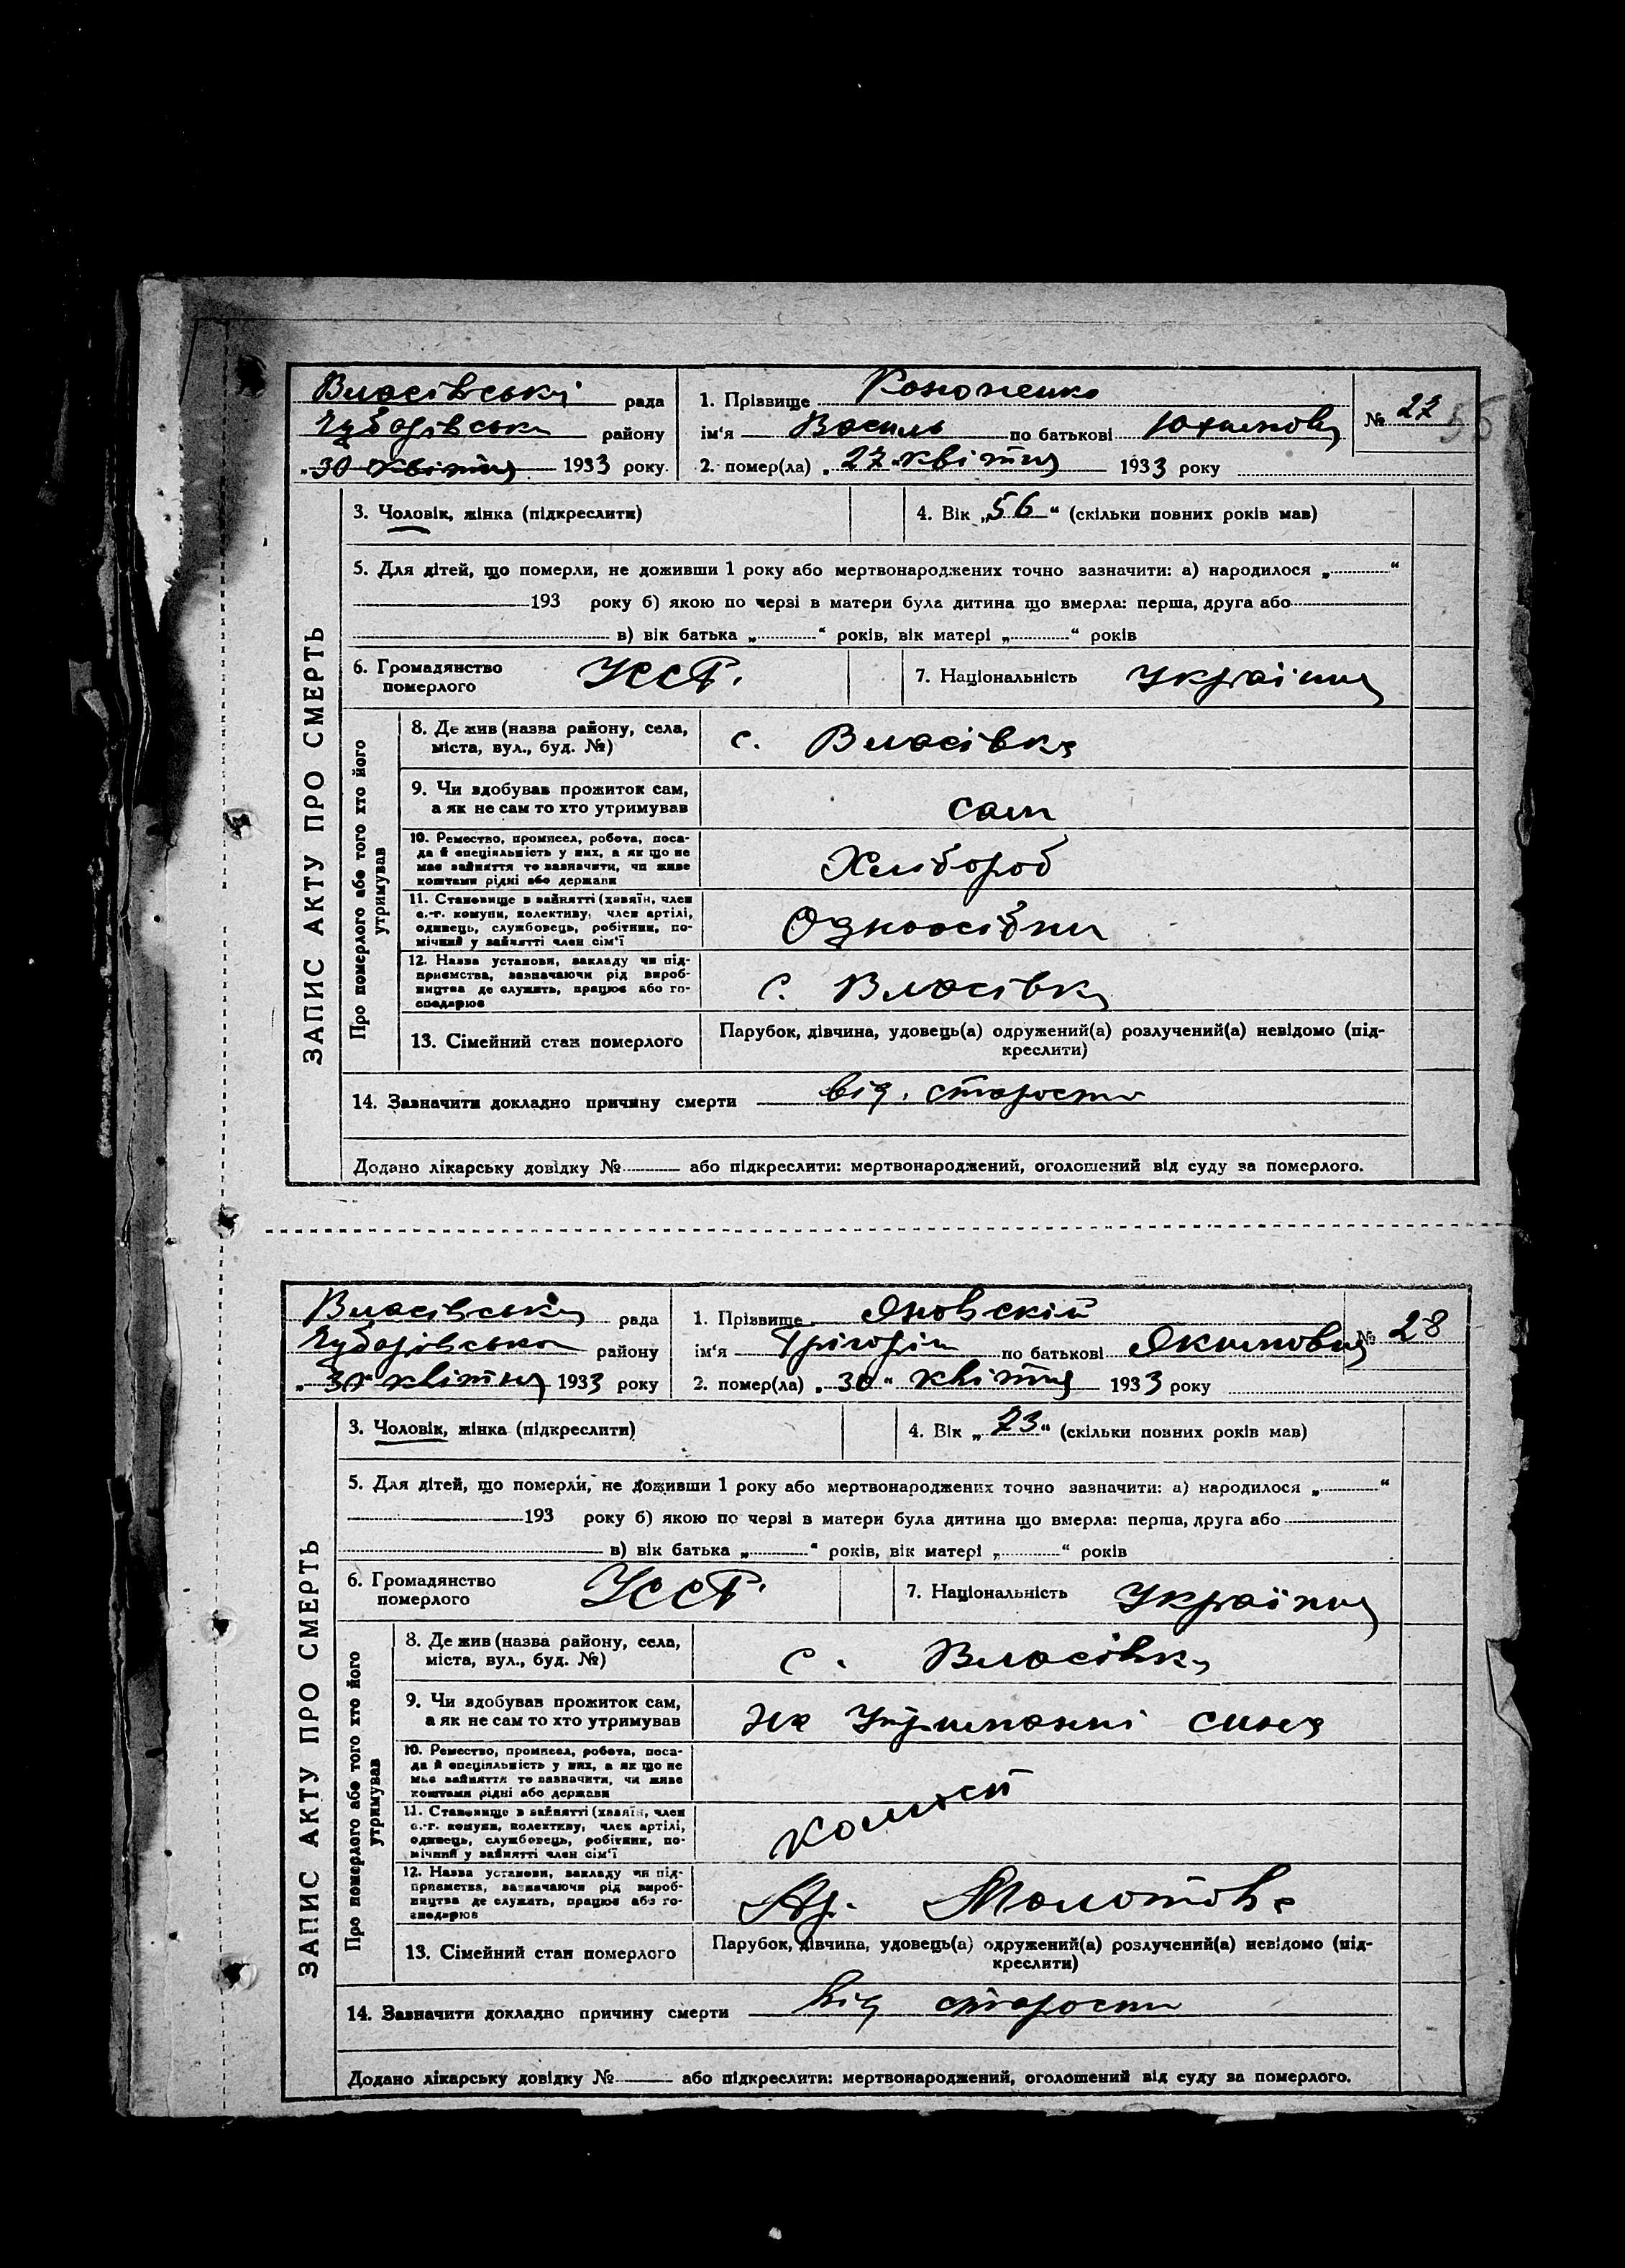 Власівська рада
Чубарівська району
„30 квітня 1933 року.
1. Прізвище Кононенко
ім'я Василь по батькові Юхимович
2. помер(ла) „27" квітня 1933 року
№ 27
56
ЗАПИС АКТУ ПРО СМЕРТЬ
3. Чоловік, жінка (підкреслити)
4. Вік „56" (скільки повних років мав)
5. Для дітей, що померли, не доживши 1 року або мертвонароджених точно зазначити: а) народилося „ "
193 року б) якою по черзі в матери була дитина що вмерла: перша, друга або
в) вік батька „ " років, вік матері „ " років
6. Громадянство
померлого
УССР.
7. Національність Українец
Про померлого або того хто його
утримував
8. Де жив (назва району, села,
міста, вул., буд. №)
с. Власівка
9. Чи здобував прожиток сам,
а як не сам то хто утримував
сам
10. Ремество, промисел, робота, поса-
да й спеціяльність у них, а як що не
має зайняття то зазначити, чи живе
коштами рідні або держави
Хлібороб
11. Становище в зайнятті (хазяїн, член
с.-г. комуни, колективу, член артілі,
одинець, службовець, робітник, по-
мічний у зайнятті член сім'ї
Одноосібни
12. Назва установи, закладу чи під-
приємства, зазначаючи рід вироб-
ництва де служить, працює або го-
сподарює
с. Власівка
13. Сімейний стан померлого
Парубок, дівчина, удовець(а) одружений(а) розлучений(а) невідомо (під-
креслити)
14. Зазначити докладно причину смерти від. старости
Додано лікарську довідку № або підкреслити: мертвонароджений, оголошений від суду за померлого.
Власівська рада
Чубарівсько району
„ квітня 1933 року
1. Прізвище Яновскій
ім'я Грігорій по батькові Якимович
2. помер(ла) „30" квітня 1933 року
№ 28
ЗАПИС АКТУ ПРО СМЕРТЬ
3. Чоловік, жінка (підкреслити)
4. Вік „73" (скільки повних років мав)
5. Для дітей, що померли, не доживши 1 року або мертвонароджених точно зазначити: а) народилося „ "
193 року б) якою по черзі в матери була дитина що вмерла: перша, друга або
в) вік батька „ " років, вік матері „ " років
6. Громадянство
померлого
УССР.
7. Національність Українец
Про померлого або того хто його
утримував
8. Де жив (назва району, села,
міста, вул., буд. №)
с. Власівка
9. Чи здобував прожиток сам,
а як не сам то хто утримував
на утриманні сина
10. Ремество, промисел, робота, поса-
да й спеціяльність у них, а як що не
має зайняття то зазначити, чи живе
коштами рідні або держави
11. Становище в зайнятті (хазяїн, член
с.-г. комуни, колективу, член артілі,
одинець, службовець, робітник, по-
мічний у зайнятті член сім'ї
12. Назва установи, закладу чи під-
приємства, зазначаючи рід вироб-
ництва де служить, працює або го-
сподарює
Ар. Молотова
13. Сімейний стан померлого
Парубок, дівчина, удовець(а) одружений(а) розлучений(а) невідомо (під-
креслити)
14. Зазначити докладно причину смерти від старости
Додано лікарську довідку № або підкреслити: мертвонароджений, оголошений від суду за померлого.